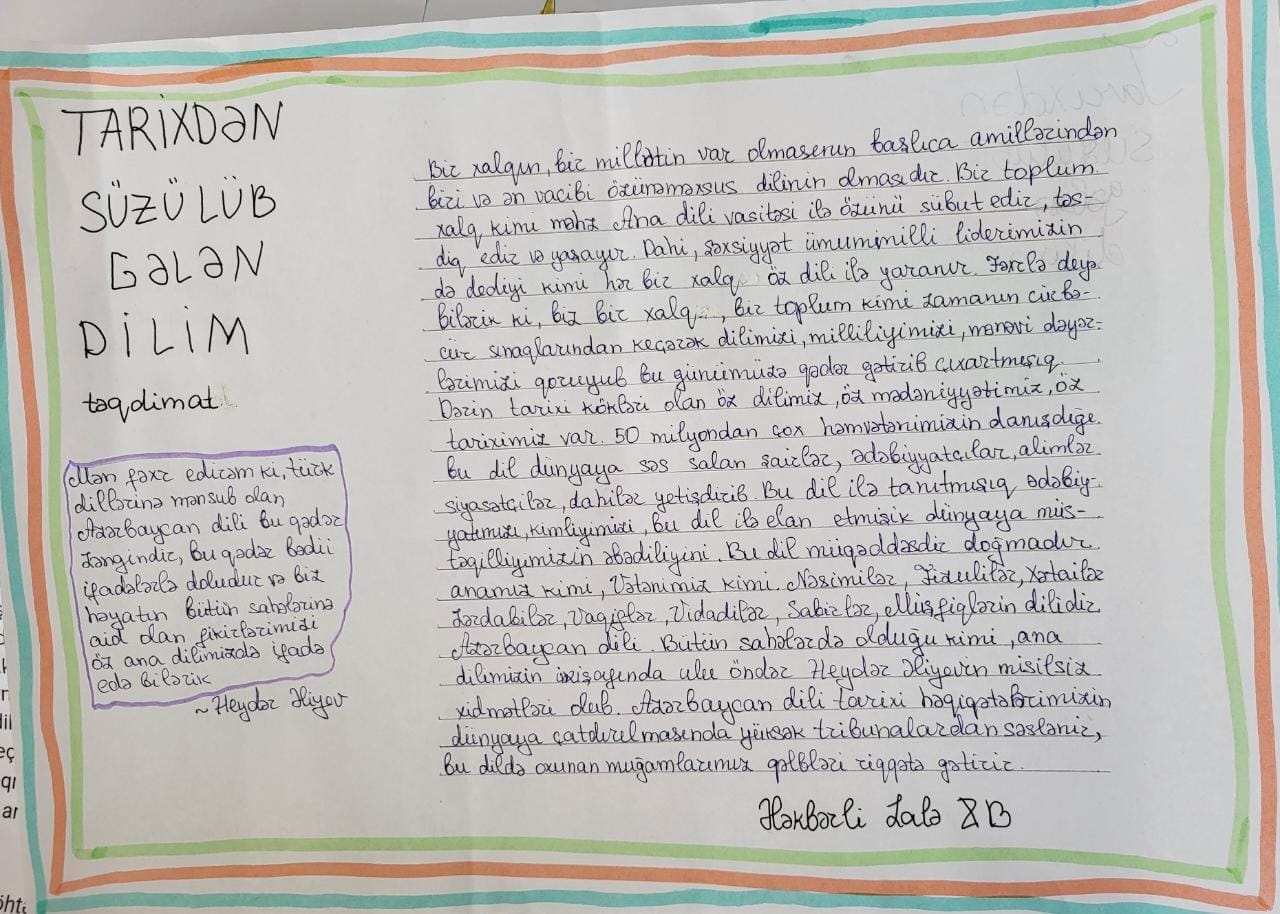 TARİXDƏN
SÜZÜLÜB
GƏLƏN
DİLİM
təqdimat
Mən fəxr edirəm ki, türk
dillərinə mənsub olan
Azərbaycan dili bu qədər
zəngindir, bu qədər bədii
ifadələrlə doludur və biz
həyatın bütün sahələrinə
aid olan fikirlərimizi
öz ana dilimizdə ifadə
edə bilərik
~ Heydər Əliyev
Bir xalqın, bir millətin var olmasının başlıca amillərindən
biri və ən vacibi özünəməxsus dilinin olmasıdır. Bir toplum
xalq kimi məhz Ana dili vasitəsi ilə özünü sübut edir, təs-
diq edir və yaşayır. Dahi, şəxsiyyət ümummilli liderimizin
də dediyi kimi hər bir xalq öz dili ilə yaranır. Fəxrlə deyə
bilərik ki, biz bir xalq, bir toplum kimi zamanın cürbə-
cür sınaqlarından keçərək dilimizi, milliliyimizi, mənəvi dəyər-
lərimizi qoruyub bu günümüzə qədər gətirib çıxartmışıq.
Dərin tarixi kökləri olan öz dilimiz, öz mədəniyyətimiz, öz
tariximiz var. 50 milyondan çox həmvətənimizin danışdığı
bu dil dünyaya səs salan şairlər, ədəbiyyatcılar, alimlər
siyasətçilər, dahilər yetişdirib. Bu dil ilə tanıtmışıq ədəbiy-
yatımızı, kimliyimizi, bu dil ilə elan etmişik dünyaya müs-
təqilliyimizin əbədiliyini. Bu dil müqəddəsdir doğmadır
anamız kimi, Vətənimiz kimi. Nəsimilər, Füzulilər, Xətailər
Zərdabilər, Vaqiflər, Vidadilər, Sabirlər, Müşfiqlərin dilidir
Azərbaycan dili. Bütün sahələrdə olduğu kimi, ana
dilimizin inkişafında ulu öndər Heydər Əliyevin misilsiz
xidmətləri olub. Azərbaycan dili tarixi həqiqətlərimizin
dünyaya çatdırılmasında yüksək tribunalardan səslənir,
bu dildə oxunan muğamlarımız qəlbləri riqqətə gətirir.
Ələkbərli Lalə XB